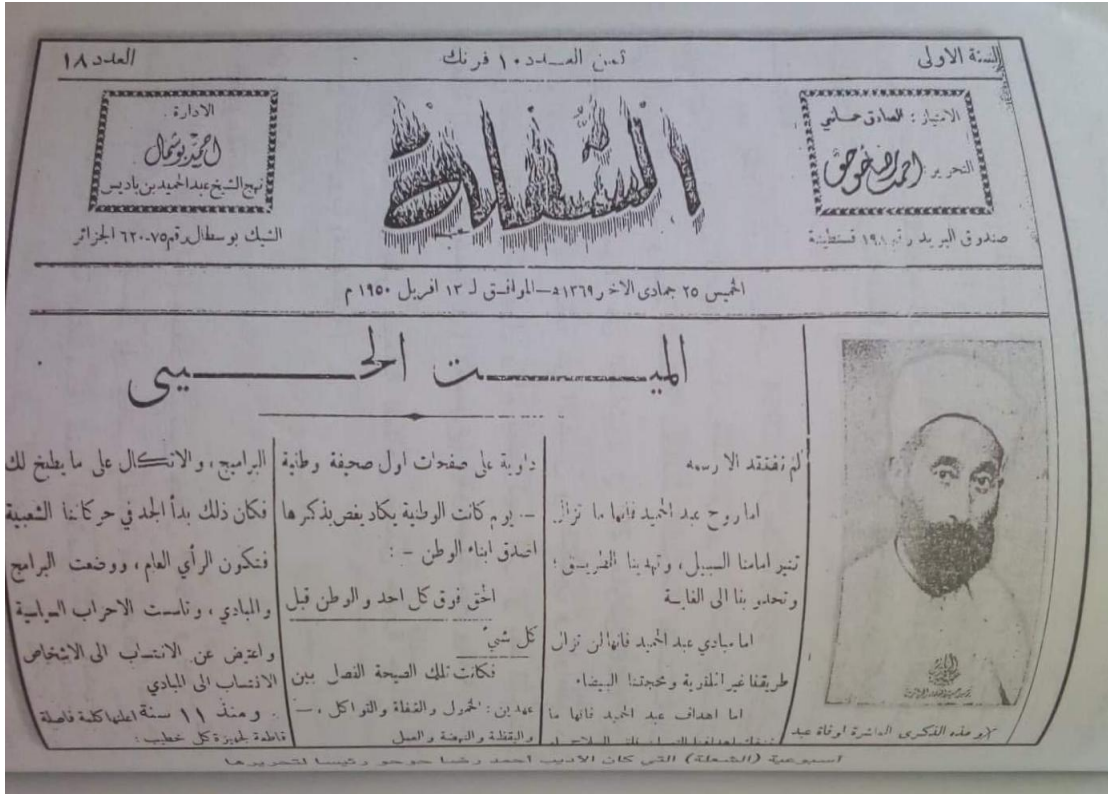 السنة الاولى
ثمن العدد ١٠ فرنك
العدد ١٨
الامتياز : الصادق حماني
التحرير احمد رضا حوحو
صندوق البريد رقم ١٩٨ قسنطينة
الشعلة
الادارة :
احمد بوشمال
نهج الشيخ عبد الحميد بن باديس
الشيك بوسطال رقم ٧٥-٦٢٠ الجزائر
الخميس ٢٥ جمادى الاخر ١٣٦٩ هـ - الموافق لـ ١٣ افريل ١٩٥٠ م
الميت الحي
وهذه الذكرى العاشرة لوفاة عبد
لم نفتقد الا رسمه
اما روح عبد الحميد فانها ما تزال
تنير امامنا السبيل، وتهدينا الطريق،
وتحدو بنا الى الغاية
اما مبادي عبد الحميد فانها لن تزال
طريقنا غير الملتوية ومحجتنا البيضاء
اما اهداف عبد الحميد فانها ما
داوية على صفحات اول صحيفة وطنية
- يوم كانت الوطنية يكاد يغص بذكرها
اصدق ابناء الوطن - :
الحق فوق كل احد والوطن قبل
كل شيء
فكانت تلك الصيحة الفصل بين
عهدين : الخمول والغفلة والتواكل، -
واليقظة والنهضة والعمل
البراميج، والاتكال على ما يطبخ لك
فكان ذلك بدأ الجد في حركاتنا الشعبية
فتكون الرأي العام، ووضعت البرامج
والمبادي، وتاسست الاحزاب السياسية
واعتيض عن الانتساب الى الاشخاص
الانتساب الى المبادي
ومنذ ١١ سنة اعلنها كلمة فاصلة
قاطعة لجهيزة كل خطيب :
اسبوعية (الشعلة) التي كان الاديب احمد رضا حوحو رئيسا لتحريرها